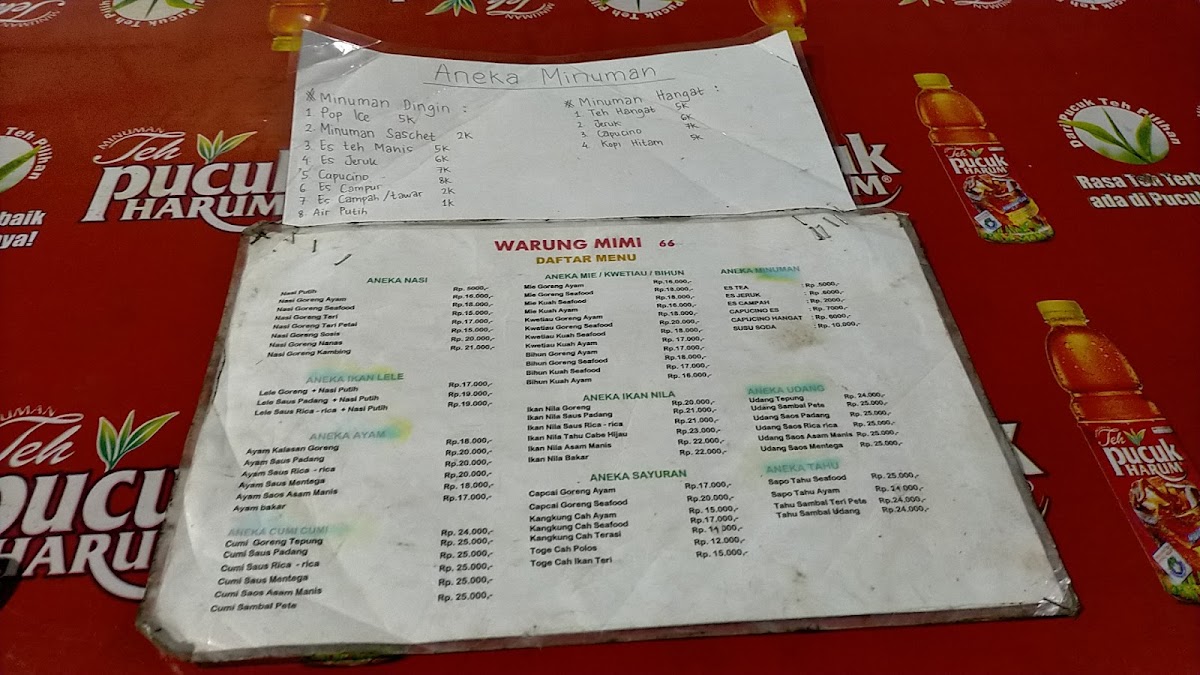 Aneka Minuman
※ Minuman Dingin :
1 Pop Ice 5K
2. Minuman Saschet 2K
3. Es teh Manis 5K
4 Es Jeruk 6K
5. Capucino 7K
6 Es Campur 8K
7 Es Campah/tawar 2K
8. Air Putih 1K
※ Minuman Hangat :
1. Teh Hangat 5K
2. Jeruk 6K
3. Capucino 7K
4. Kopi Hitam 5K
WARUNG MIMI 66
DAFTAR MENU
ANEKA NASI
Nasi Putih Rp. 5000,-
Nasi Goreng Ayam Rp. 16,000,-
Nasi Goreng Seafood Rp. 18.000,-
Nasi Goreng Teri Rp. 15.000,-
Nasi Goreng Tari Petai Rp. 17.000,-
Nasi Goreng Sosis Rp. 15.000,-
Nasi Goreng Nanas Rp. 20.000,-
Nasi Goreng Kambing Rp. 21.000,-
ANEKA IKAN LELE
Lele Goreng + Nasi Putih Rp.17.000,-
Lele Saus Padang + Nasi Putih Rp.19.000,-
Lele Saus Rica - rica + Nasi Putih Rp.19.000,-
ANEKA AYAM
Ayam Kalasan Goreng Rp.18.000,-
Ayam Saus Padang Rp.20.000,-
Ayam Saus Rica - rica Rp.20.000,-
Ayam Saus Mentega Rp.20.000,-
Ayam Saos Asam Manis Rp. 18.000,-
Ayam bakar Rp.17.000,-
ANEKA CUMI CUMI
Cumi Goreng Tepung Rp. 24.000,-
Cumi Saus Padang Rp. 25.000,-
Cumi Saus Rica - rica Rp. 25.000,-
Cumi Saus Mentega Rp. 25.000,-
Cumi Saos Asam Manis Rp. 25.000,-
Cumi Sambal Pete Rp. 25.000,-
ANEKA MIE / KWETIAU / BIHUN
Mie Goreng Ayam Rp.16,000,-
Mie Goreng Seafood Rp.18.000,-
Mie Kuah Seafood Rp. 18.000,-
Mie Kuah Ayam Rp.16.000,-
Kwetiau Goreng Ayam Rp. 18.000,-
Kwetiau Goreng Seafood Rp.20.000,-
Kwetiau Kuah Seafood Rp. 18.000,-
Kwetiau Kuah Ayam Rp. 17.000,-
Bihun Goreng Ayam Rp. 17.000,-
Bihun Goreng Seafood Rp.18.000,-
Bihun Kuah Seafood Rp. 17.000,-
Bihun Kuah Ayam Rp. 16.000,-
ANEKA IKAN NILA
Ikan Nila Goreng Rp.20.000,-
Ikan Nila Saus Padang Rp.21.000,-
Ikan Nila Saus Rica - rica Rp.21.000,-
Ikan Nila Tahu Cabe Hijau Rp.23.000,-
Ikan Nila Asam Manis Rp. 22.000,-
Ikan Nila Bakar Rp. 22.000,-
ANEKA SAYURAN
Capcai Goreng Ayam Rp.17.000,-
Capcai Goreng Seafood Rp.20.000,-
Kangkung Cah Ayam Rp. 15.000,-
Kangkung Cah Seafood Rp.17.000,-
Kangkung Cah Terasi Rp. 14.000,-
Toge Cah Polos Rp. 12.000,-
Toge Cah Ikan Teri Rp. 15.000,-
ANEKA MINUMAN
ES TEA : Rp. 5000,-
ES JERUK : Rp. 6000,-
ES CAMPAH : Rp. 2000,-
CAPUCINO ES : Rp. 7000,-
CAPUCINO HANGAT : Rp. 6000,-
SUSU SODA : Rp. 10.000,-
ANEKA UDANG
Udang Tepung Rp. 24.000,-
Udang Sambal Pete Rp. 25.000,-
Udang Saos Padang Rp. 25.000,-
Udang Saus Rica rica Rp. 25.000,-
Udang Saos Asam Manis Rp. 25.000,-
Udang Saos Mentega Rp. 25.000,-
ANEKA TAHU
Sapo Tahu Seafood Rp. 25.000,-
Sapo Tahu Ayam Rp. 24.000,-
Tahu Sambal Teri Pete Rp.24.000,-
Tahu Sambal Udang Rp.24.000,-
MINUMAN
Teh
pucuk
HARUM
Dari Pucuk Teh Pilihan
Teh
pucuk
HARUM
MINUMAN
Teh
pucuk
HARUM